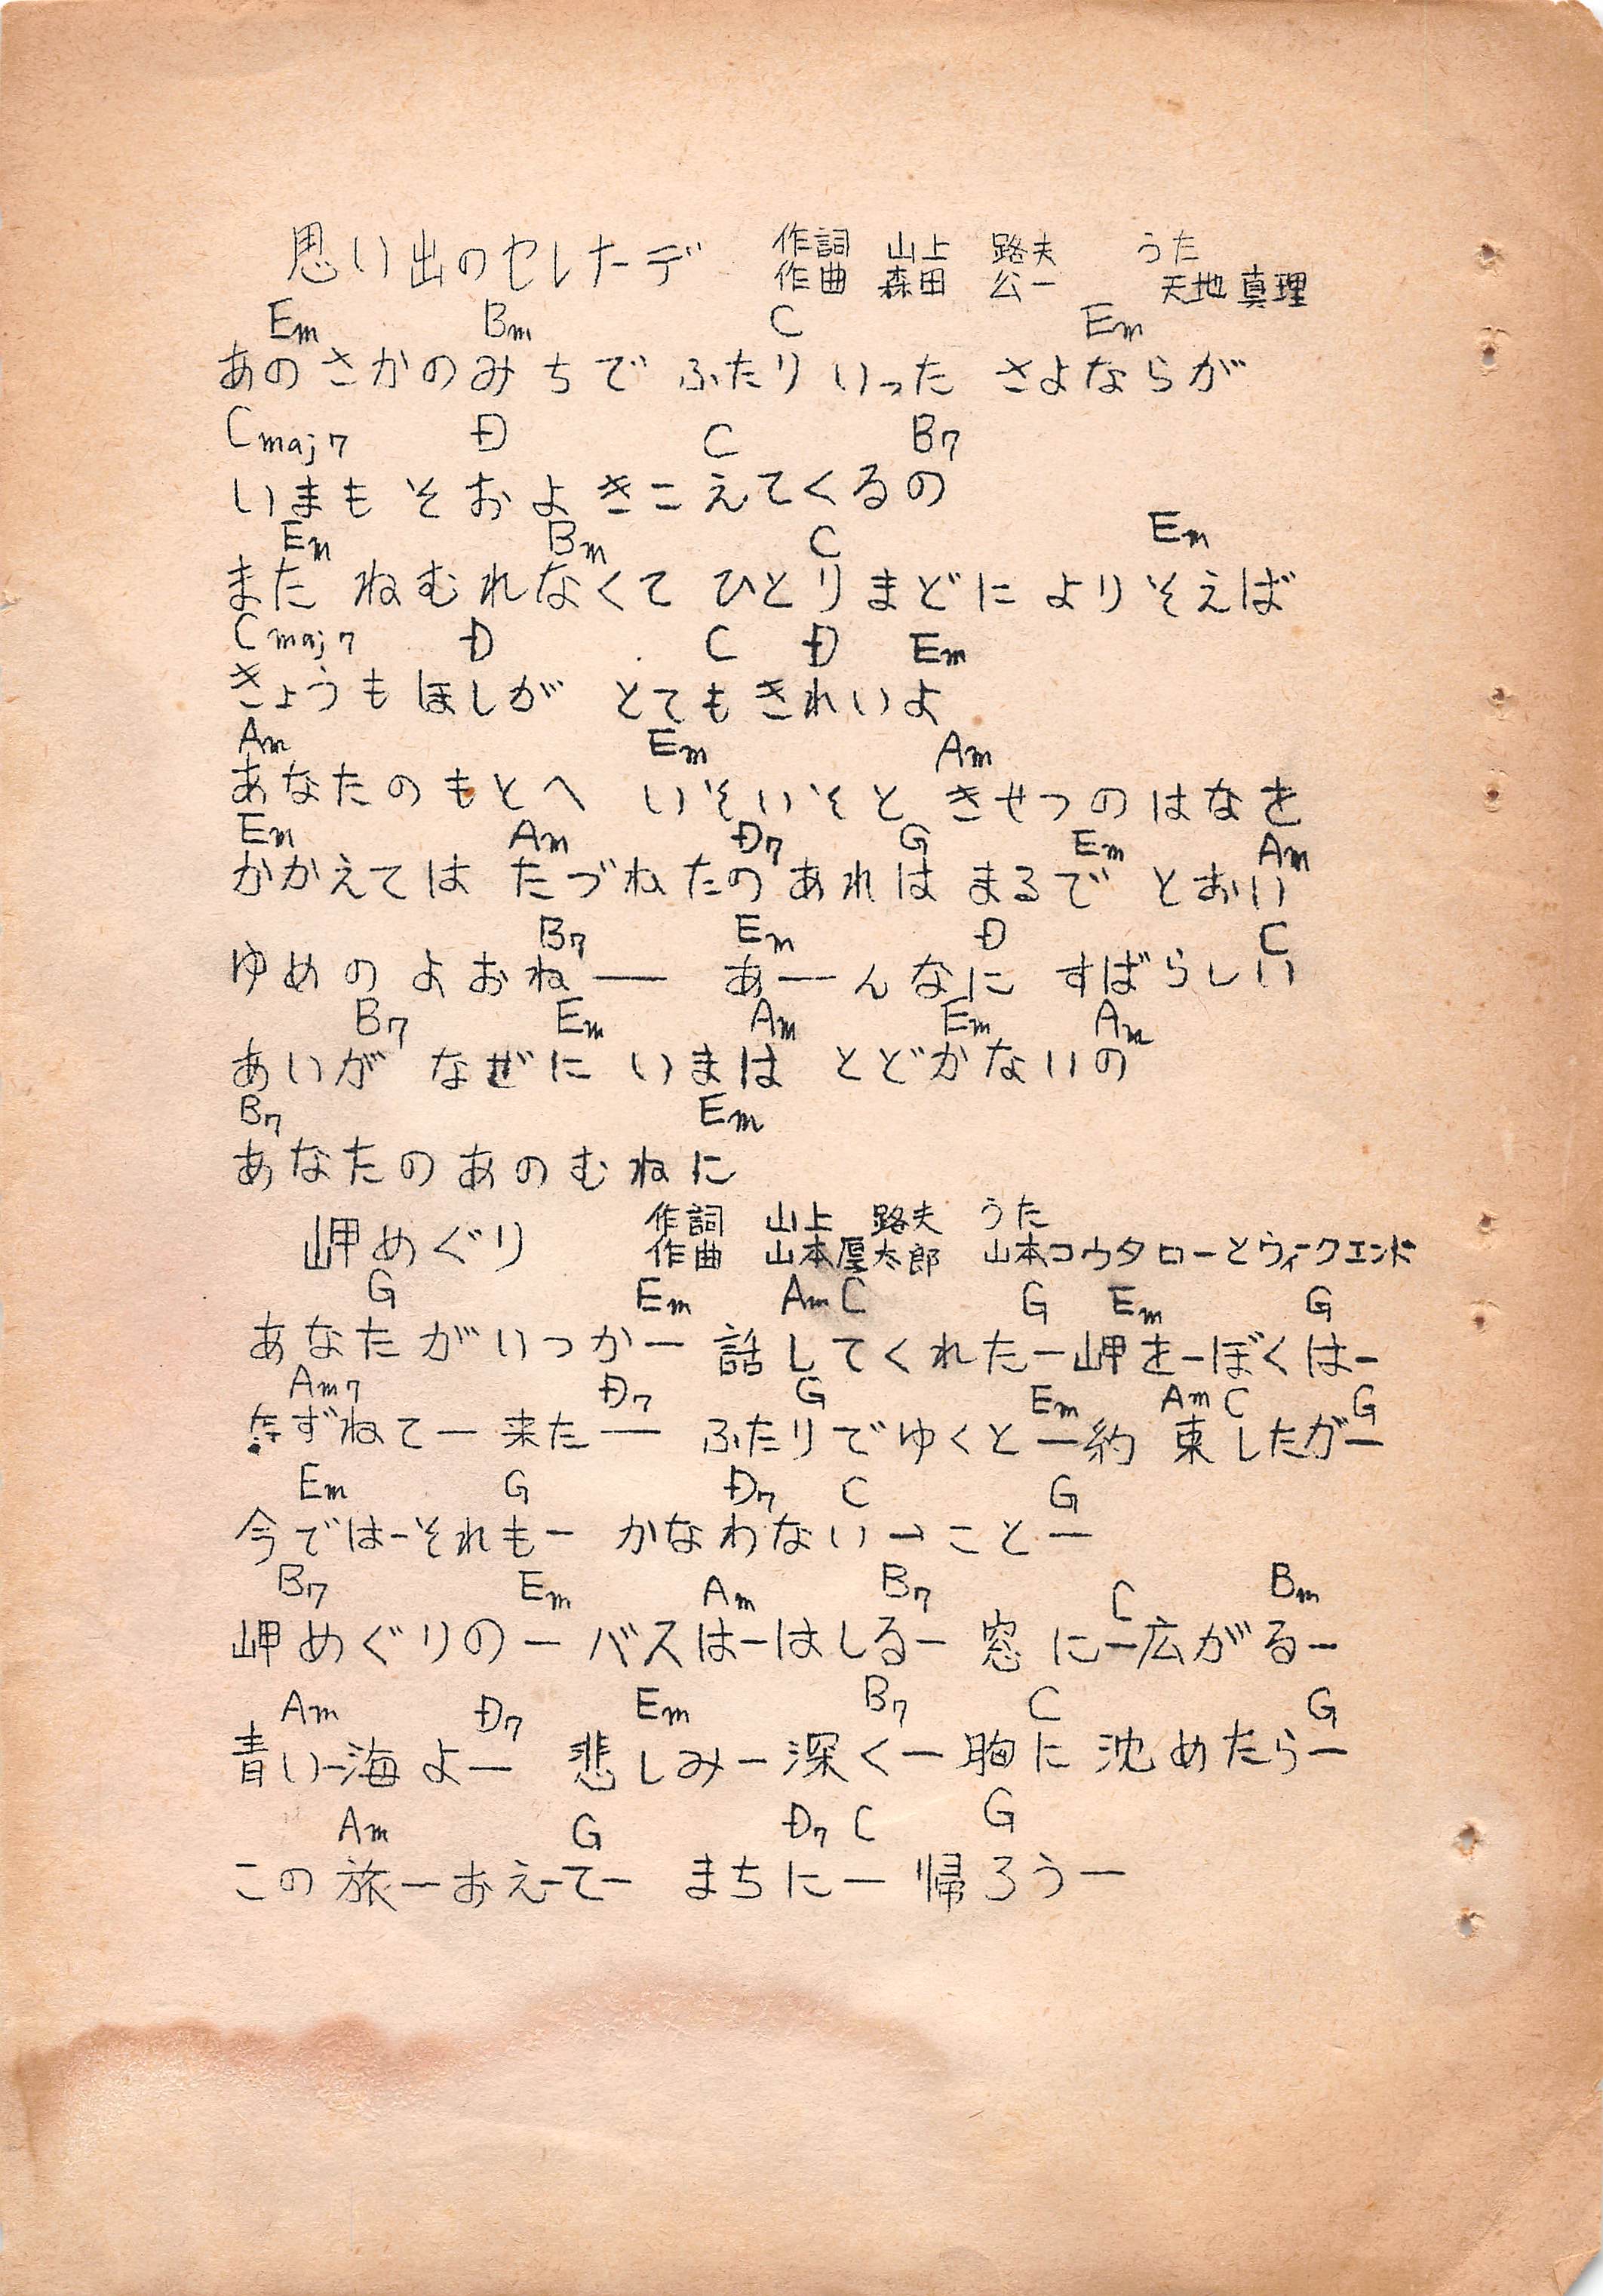 思い出のセレナーデ 作詞 山上 路夫 うた
作曲 森田 公一 天地 真理
Em Bm C Em
あのさかのみちで ふたり いった さよならが
Cmaj7 D C B7
いまも そおよ きこえてくるの
Em Bm C Em
また ねむれなくて ひとりまどに よりそえば
Cmaj7 D C D Em
きょうもほしが とてもきれいよ
Am Em Am
あなたのもとへ いそいそと きせつのはなを
Em Am D7 G Em Am
かかえては たづねたの あれは まるで とおい
B7 Em D C
ゆめの よおねー あーんなに すばらしい
B7 Em Am Em Am
あいが なぜに いまは とどかないの
B7 Em
あなたのあのむねに
岬めぐり 作詞 山上 路夫 うた
作曲 山本厚太郎 山本コウタローとウィークエンド
G Em Am C G Em G
あなたがいつかー 話してくれたー岬をーぼくはー
Am7 D7 G Em Am C G
たずねてー来たー ふたりでゆくとー約束したがー
Em G D7 C G
今ではーそれもー かなわないーことー
B7 Em Am B7 C Bm
岬めぐりのーバスはーはしるー 窓にー広がるー
Am D7 Em B7 C G
青いー海よー 悲しみー深くー胸に 沈めたらー
Am G D7 C G
この旅ーおえーてー まちにー 帰ろうー